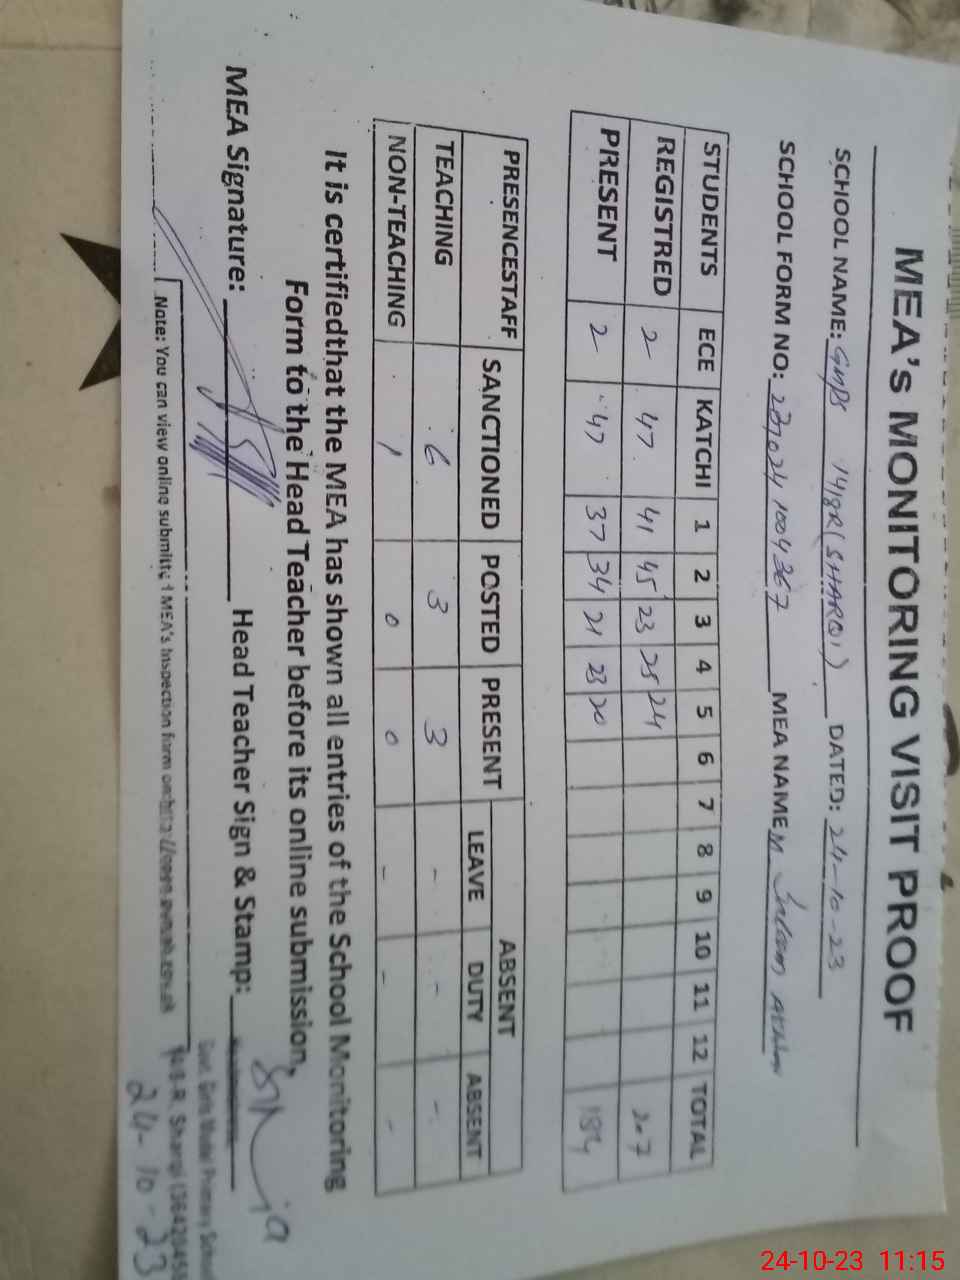 MEA's MONITORING VISIT PROOF
SCHOOL NAME: GMPS 14/8R (SHARQI) DATED: 24-10-23
SCHOOL FORM NO: MEA NAME M
STUDENTS ECE KATCHI 1 2 3 4 5 6 7 8 9 10 11 12 TOTAL
REGISTRED 2 47 41 45 23 25 24 207
PRESENT 2 47 37 34 21 23 20 184
PRESENCESTAFF SANCTIONED POSTED PRESENT ABSENT
LEAVE DUTY ABSENT
TEACHING 6 3 3 - - -
NON-TEACHING 1 0 0 - - -
It is certifiedthat the MEA has shown all entries of the School Monitoring
Form to the Head Teacher before its online submission,
MEA Signature: Head Teacher Sign & Stamp:
Govt. Girls Model Primary School
14-8-R. Sharqi
24-10-23
Note: You can view online submitted MEA's Inspection form on
24-10-23 11:15